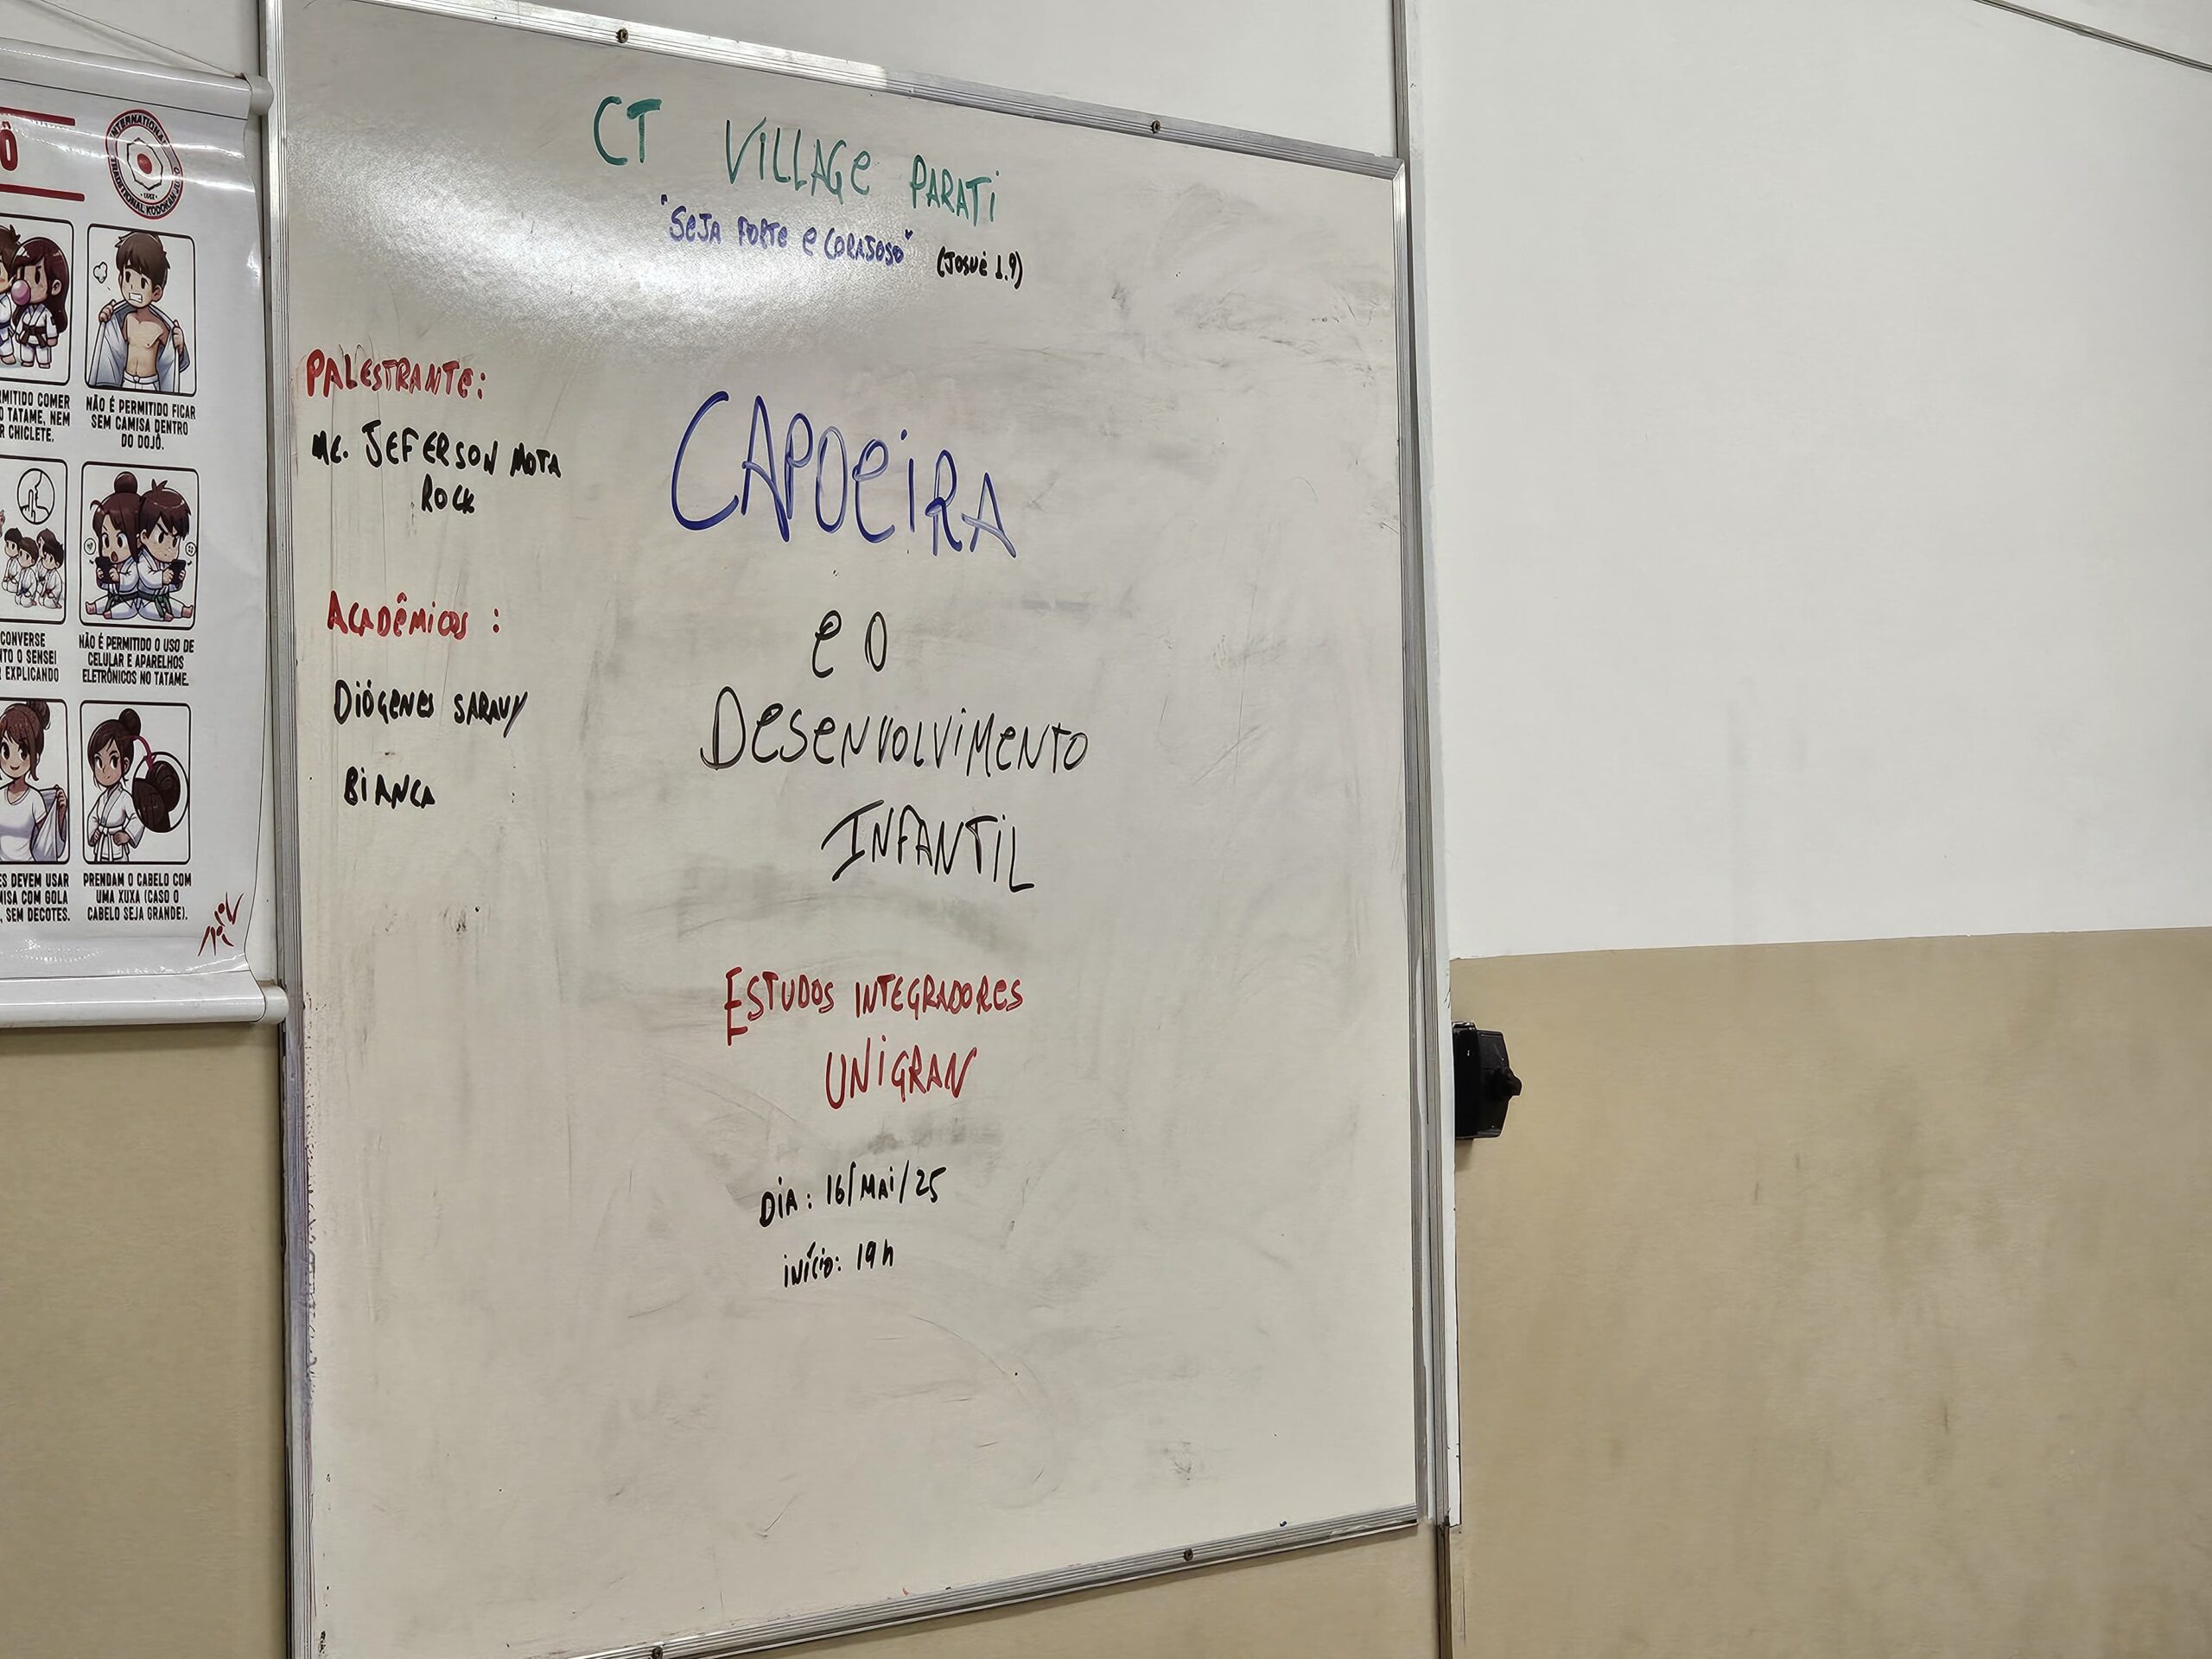 Ô
INTERNATIONAL
TRADITIONAL KODOKAN
RMITIDO COMER
O TATAME, NEM
R CHICLETE.
NÃO É PERMITIDO FICAR
SEM CAMISA DENTRO
DO DOJÔ.
CONVERSE
NTO O SENSEI
EXPLICANDO
NÃO É PERMITIDO O USO DE
CELULAR E APARELHOS
ELETRÔNICOS NO TATAME.
ES DEVEM USAR
MISA COM GOLA
, SEM DECOTES.
PRENDAM O CABELO COM
UMA XUXA (CASO O
CABELO SEJA GRANDE).
CT VILLAGE PARATI
"SEJA FORTE E CORAJOSO" (JOSUÉ 1.9)
PALESTRANTE:
MC. JEFERSON MOTA
ROCK
ACADÊMICOS :
DIÓGENES SARAVY
BIANCA
CAPOEIRA
E O
DESENVOLVIMENTO
INFANTIL
ESTUDOS INTEGRADORES
UNIGRAN
DIA: 16/MAI/25
INÍCIO: 19h